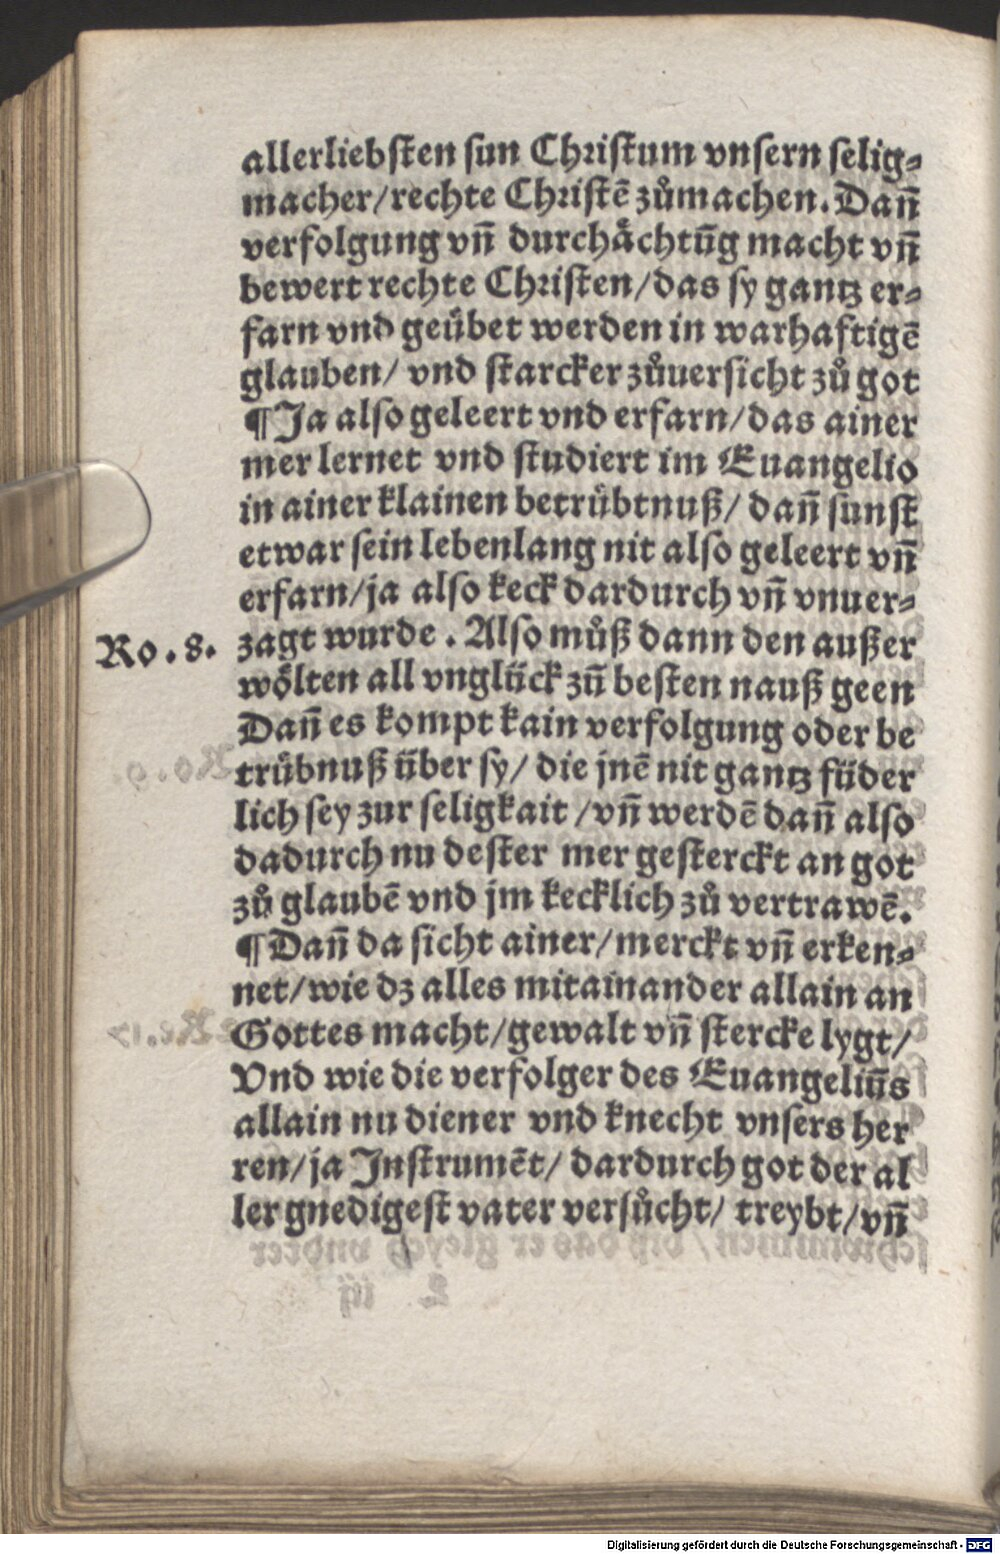 allerliebsten sun Christum vnsern selig⸗
macher/rechte Christē zůmachen. Dañ
verfolgung vñ durchåchtūg macht vñ
bewert rechte Christen/das sy gantz er⸗
farn vnd geübet werden in warhaftigē
glauben/ vnd starcker zůuersicht zů got
¶Ja also geleert vnd erfarn/das ainer
mer lernet vnd studiert im Euangelio
in ainer klainen betrübtnuß/ dañ sunst
etwar sein lebenlang nit also geleert vñ
erfarn/ja also keck dardurch vñ vnuer⸗
Ro. 8. zagt wurde. Also můß dann den außer
wölten all vnglück zū besten nauß geen
Dañ es kompt kain verfolgung oder be
trübnuß über sy/ die jnē nit gantz füder
lich sey zur seligkait /vñ werdē dañ also
dadurch nu dester mer gesterckt an got
zů glaubē vnd jm kecklich zů vertrawē.
¶Dañ da sicht ainer/merckt vñ erken⸗
net/wie dz alles mitainander allain an
Gottes macht/gewalt vñ stercke lygt/
Vnd wie die verfolger des Euangeliūs
allain nu diener vnd knecht vnsers her
ren/ja Instrumēt/ dardurch got der al
ler gnedigest vater versůcht/ treybt/vñ
Digitalisierung gefördert durch die Deutsche Forschungsgemeinschaft - DFG